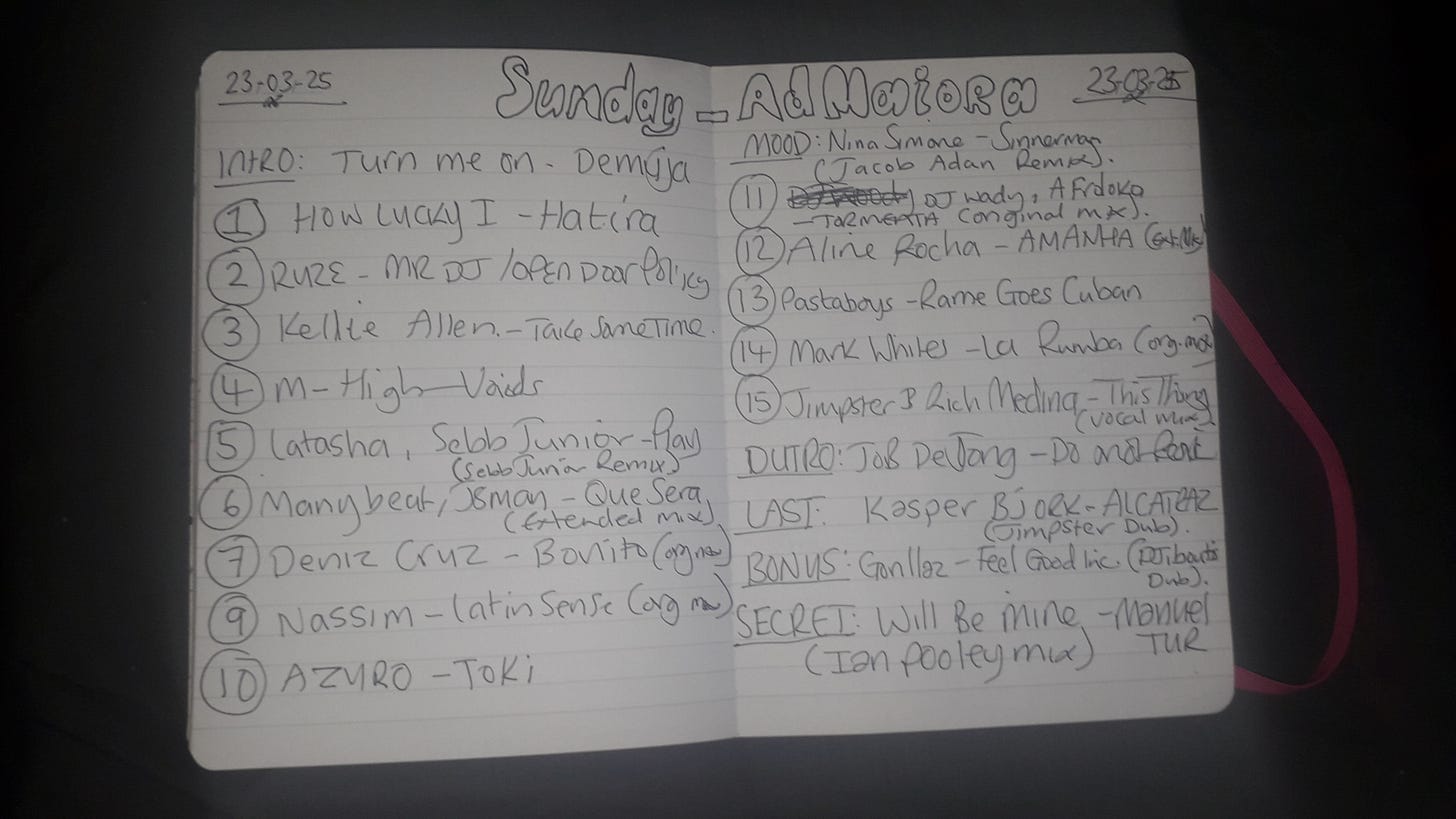 23-03-25
Sunday - Ad Maiora
23-03-25
INTRO: Turn me on - Demuja
1 HOW LUCKY I - Hatira
2 RUZE - MR DJ / OPEN DOOR POLICY
3 Kellie Allen. - Take Some Time.
4 M-High - Voids
5 Latasha, Sebb Junior - Play
(Sebb Junior Remix)
6 Manybeat, Osman - Que Sera
(Extended mix)
7 Deniz Cruz - Bonito (org mix)
9 Nassim - Latin Sense (org mix)
10 AZURO - TOKI
MOOD: Nina Simone - Sinnerman
(Jacob Adan Remix).
11 DJ wady, Afrdoko
- TORMENTA (original mix).
12 Aline Rocha - AMANHA (Ext. Mix)
13 Pastaboys - Rame Goes Cuban
14 Mark Whites - La Rumba (org. mix)
15 Jimpster & Rich Medina - This Thing
(vocal mix)
OUTRO: JOB DeJong - Do and
LAST: Kasper BJORK - ALCATRAZ
(Jimpster Dub).
BONUS: Gorillaz - Feel Good Inc. (DJiboutis
Dub).
SECRET: Will Be Mine - Manuel
(Ian Pooley mix) TUR